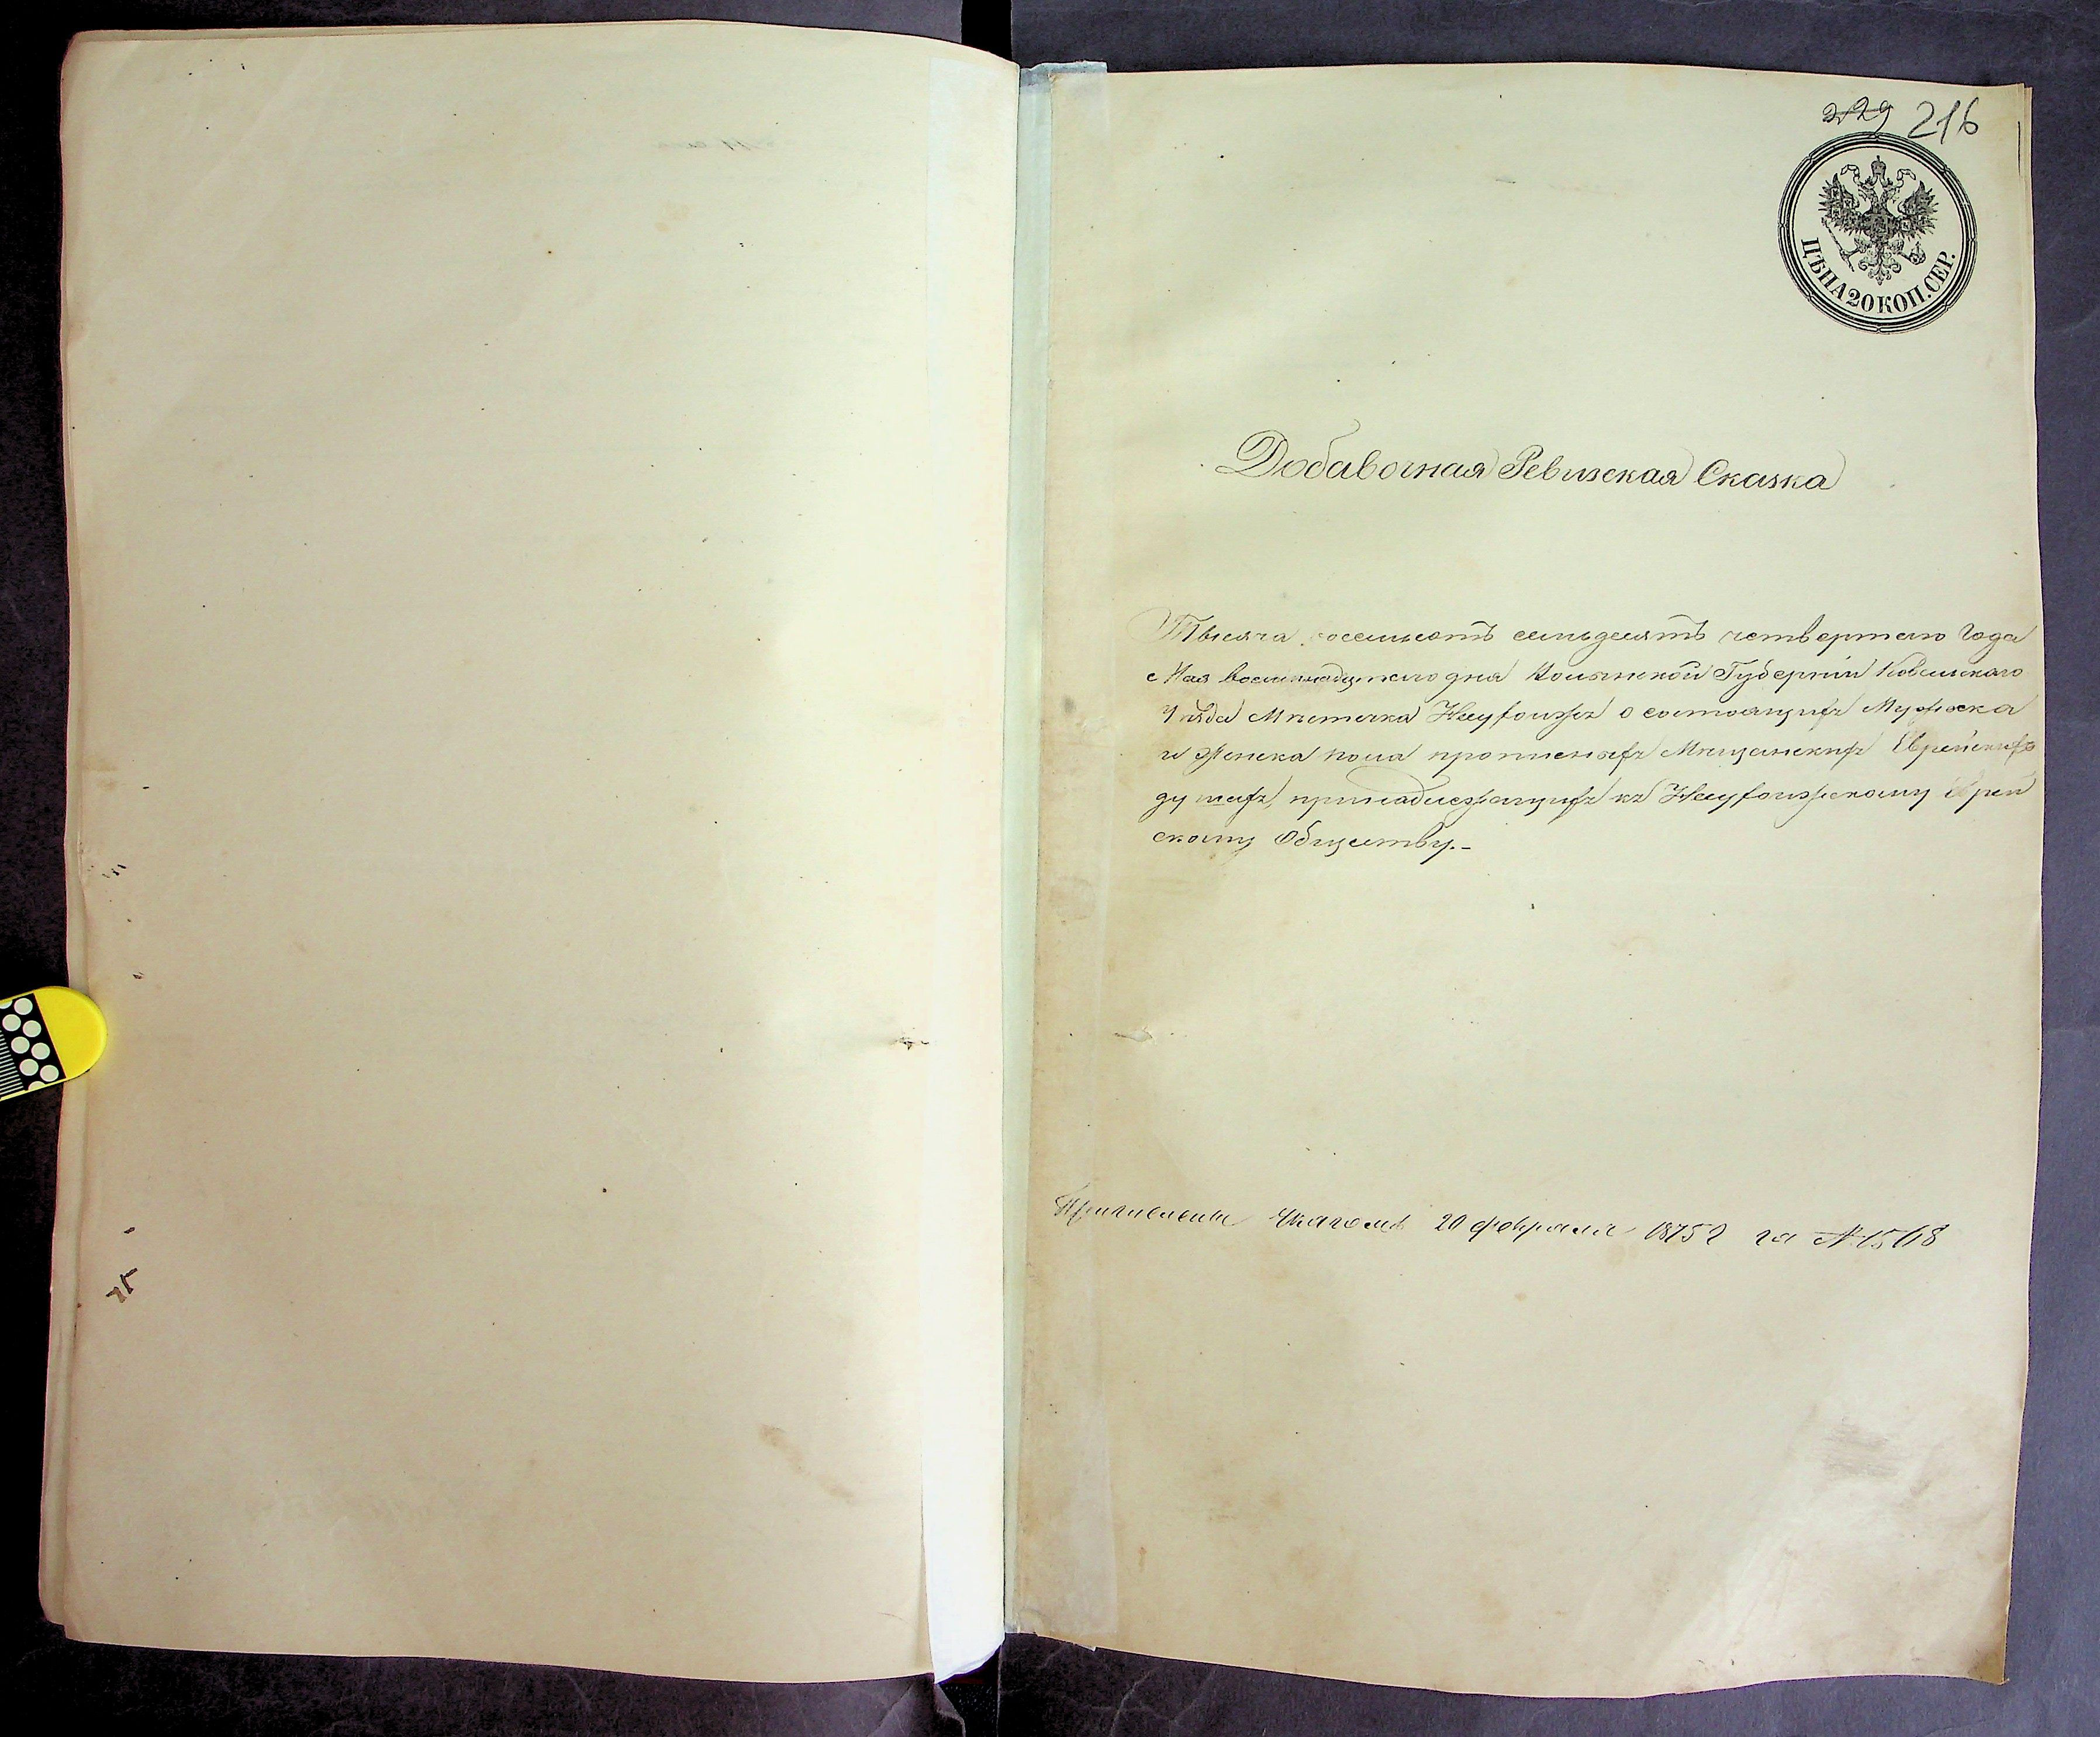 229 216
ЦѢНА 20 КОП. СЕР.
Добавочная Ревизская Сказка
Тысяча восемьсотъ семьдесятъ четвертаго Года
Мая восемнадцатаго дня Волынской Губерніи Ковельскаго
Уѣзда Мѣстечка Несухоижъ о состоящихъ Мужеска
и Женска пола Мѣщанскихъ Еврейскихъ
душахъ, принадлежащихъ къ Несухоижскому Еврей
скому Обществу.-
Указомъ 20 февраля 1875 г за №